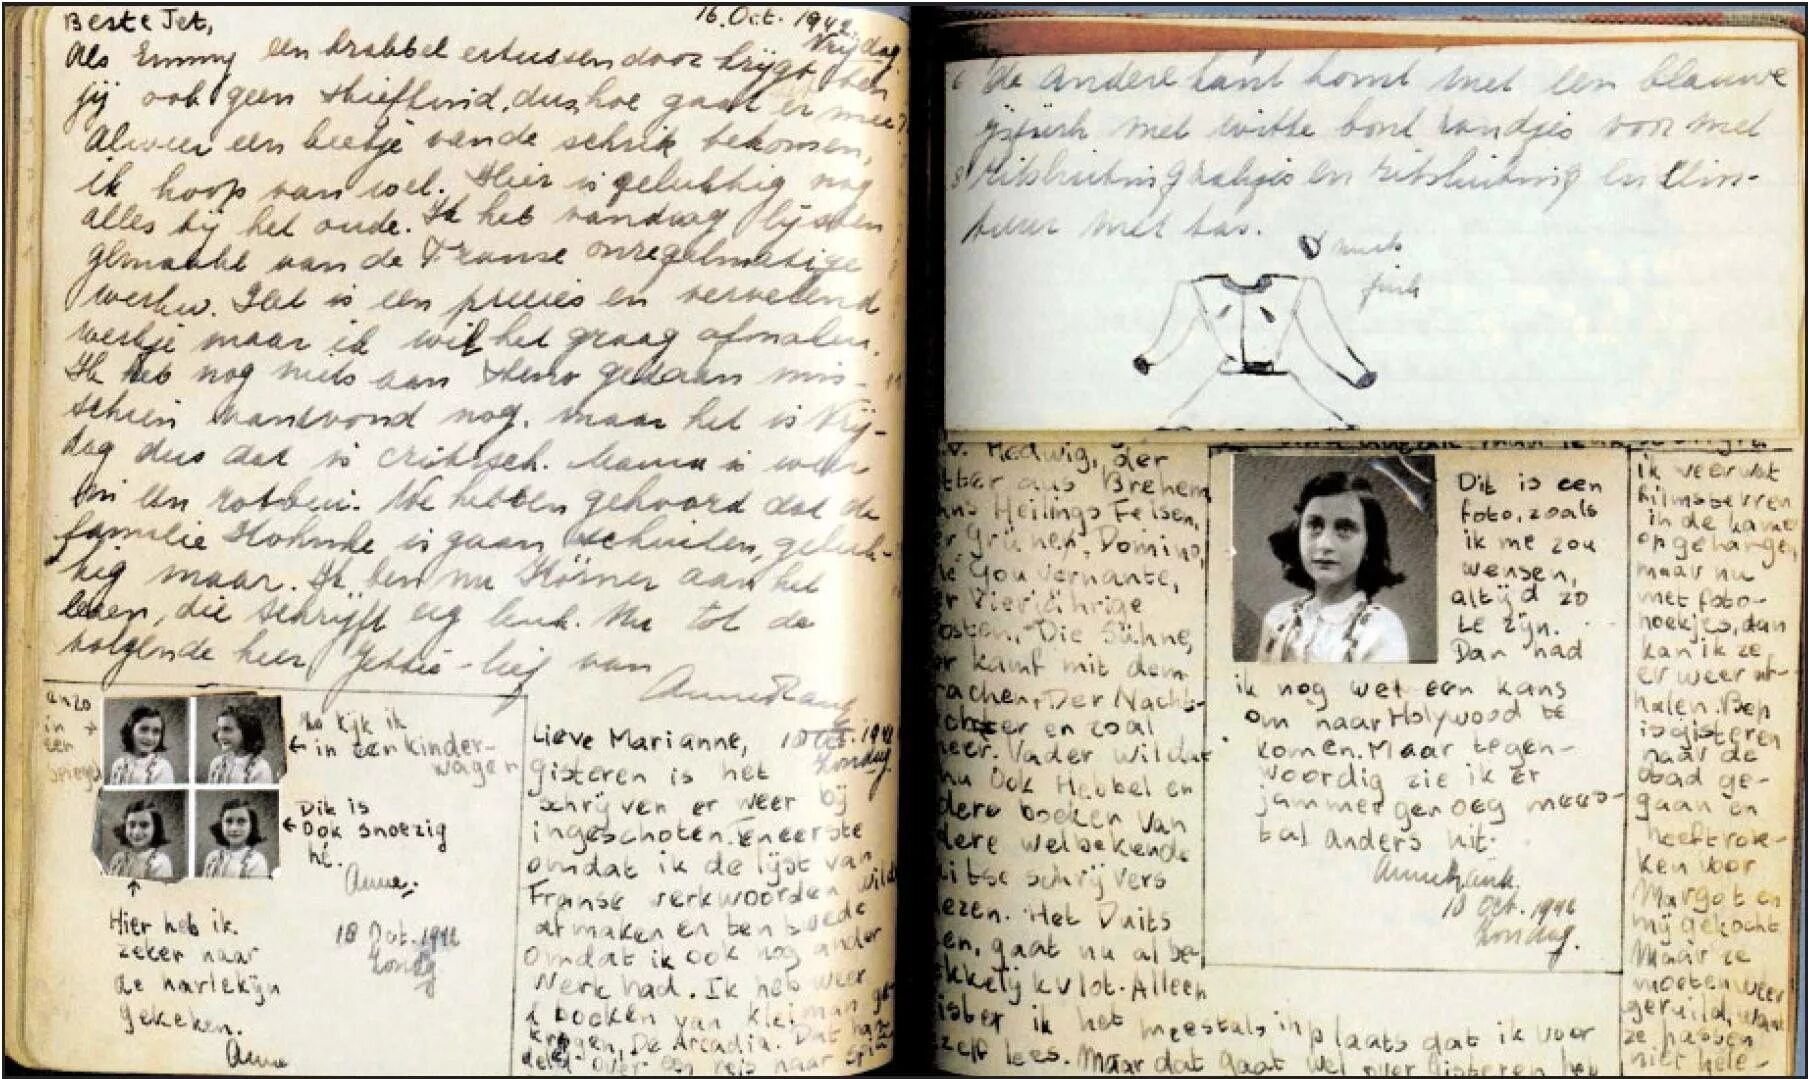 Beste Jet,
16. Oct. 1942.
Vrijdag.
Als Emmy een krabbel ertussendoor krijgt ben
jij ook geen stiefkind, dus hoe gaat er mee?
Alweer een beetje van de schrik bekomen,
ik hoop van wel. Hier is gelukkig nog
alles bij het oude. Ik heb vandaag lijsten
gemaakt van de Franse onregelmatige
werkw. Het is een precies en vervelend
werkje maar ik wil het graag afmaken.
Ik heb nog niets aan Steno gedaan mis-
schien vanavond nog, maar het is Vrij-
dag dus dat is critisch. Mama is weer
in een rotbui. We hebben gehoord dat de
familie is gaan schuilen, geluk-
kig maar. Ik ben nu Körner aan het
lezen, die schrijft erg leuk. Nu tot de
volgende keer Jettie-lief van
Anne Frank
en zo
in →
een
spiegel
Zo kijk ik
← in een kinder-
wagen
Dit is
← ook snoezig
hè.
Anne.
↑
Hier heb ik
zeker naar
de harlekijn
gekeken.
Anne
18 Oct. 1942
Zondag
Lieve Marianne,
18 Oct. 1942
Zondag
Gisteren is het
schrijven er weer bij
ingeschoten. Ten eerste
omdat ik de lijst van
Franse werkwoorden wilde
afmaken en ten tweede
omdat ik ook nog ander
werk had. Ik heb weer
2 boeken van Kleiman ge-
kregen, De Arcadia. Dat han-
delt over een reis naar
de andere kant komt met een blauwe
ijsjurk met witte bont randjes voor met
ritssluiting zakjes en ritssluiting en
met tas.
muts
jurk
Hedwig, der
aus Brehem
Heilings Felsen,
Grünen, Domino,
Gouvernante,
Vierjöhrige
osten, Die Sühne,
kamf mit dem
rachen, Der Nacht-
en zoal
meer. Vader wil dat
nu ook Hebbel en
dere boeken van
dere welbekende
itse schrijvers
ezen. Het Duits
en, gaat nu al be-
kkelijk vlot. Alleen
ister ik het meestal in plaats dat ik voor
zelf lees. Maar dat gaat wel over gisteren heb
Dit is een
foto, zoals
ik me zou
wensen,
altijd zo
te zijn.
Dan had
ik nog wel een kans
om naar Holywood te
komen. Maar tegen-
woordig zie ik er
jammer genoeg mees-
tal anders uit.
Annefrank.
18 Oct. 1942
Zondag.
ik veer wat
filmsterren
in de kamer
opgehangen,
maar nu
met foto-
hoekjes, dan
kan ik ze
er weer uit-
halen. Bep
is gisteren
naar de
stad ge-
gaan en
heeft rok-
ken voor
Margot en
mij gekocht.
Maar ze
moeten weer
geruild, want
ze passen
niet hele-